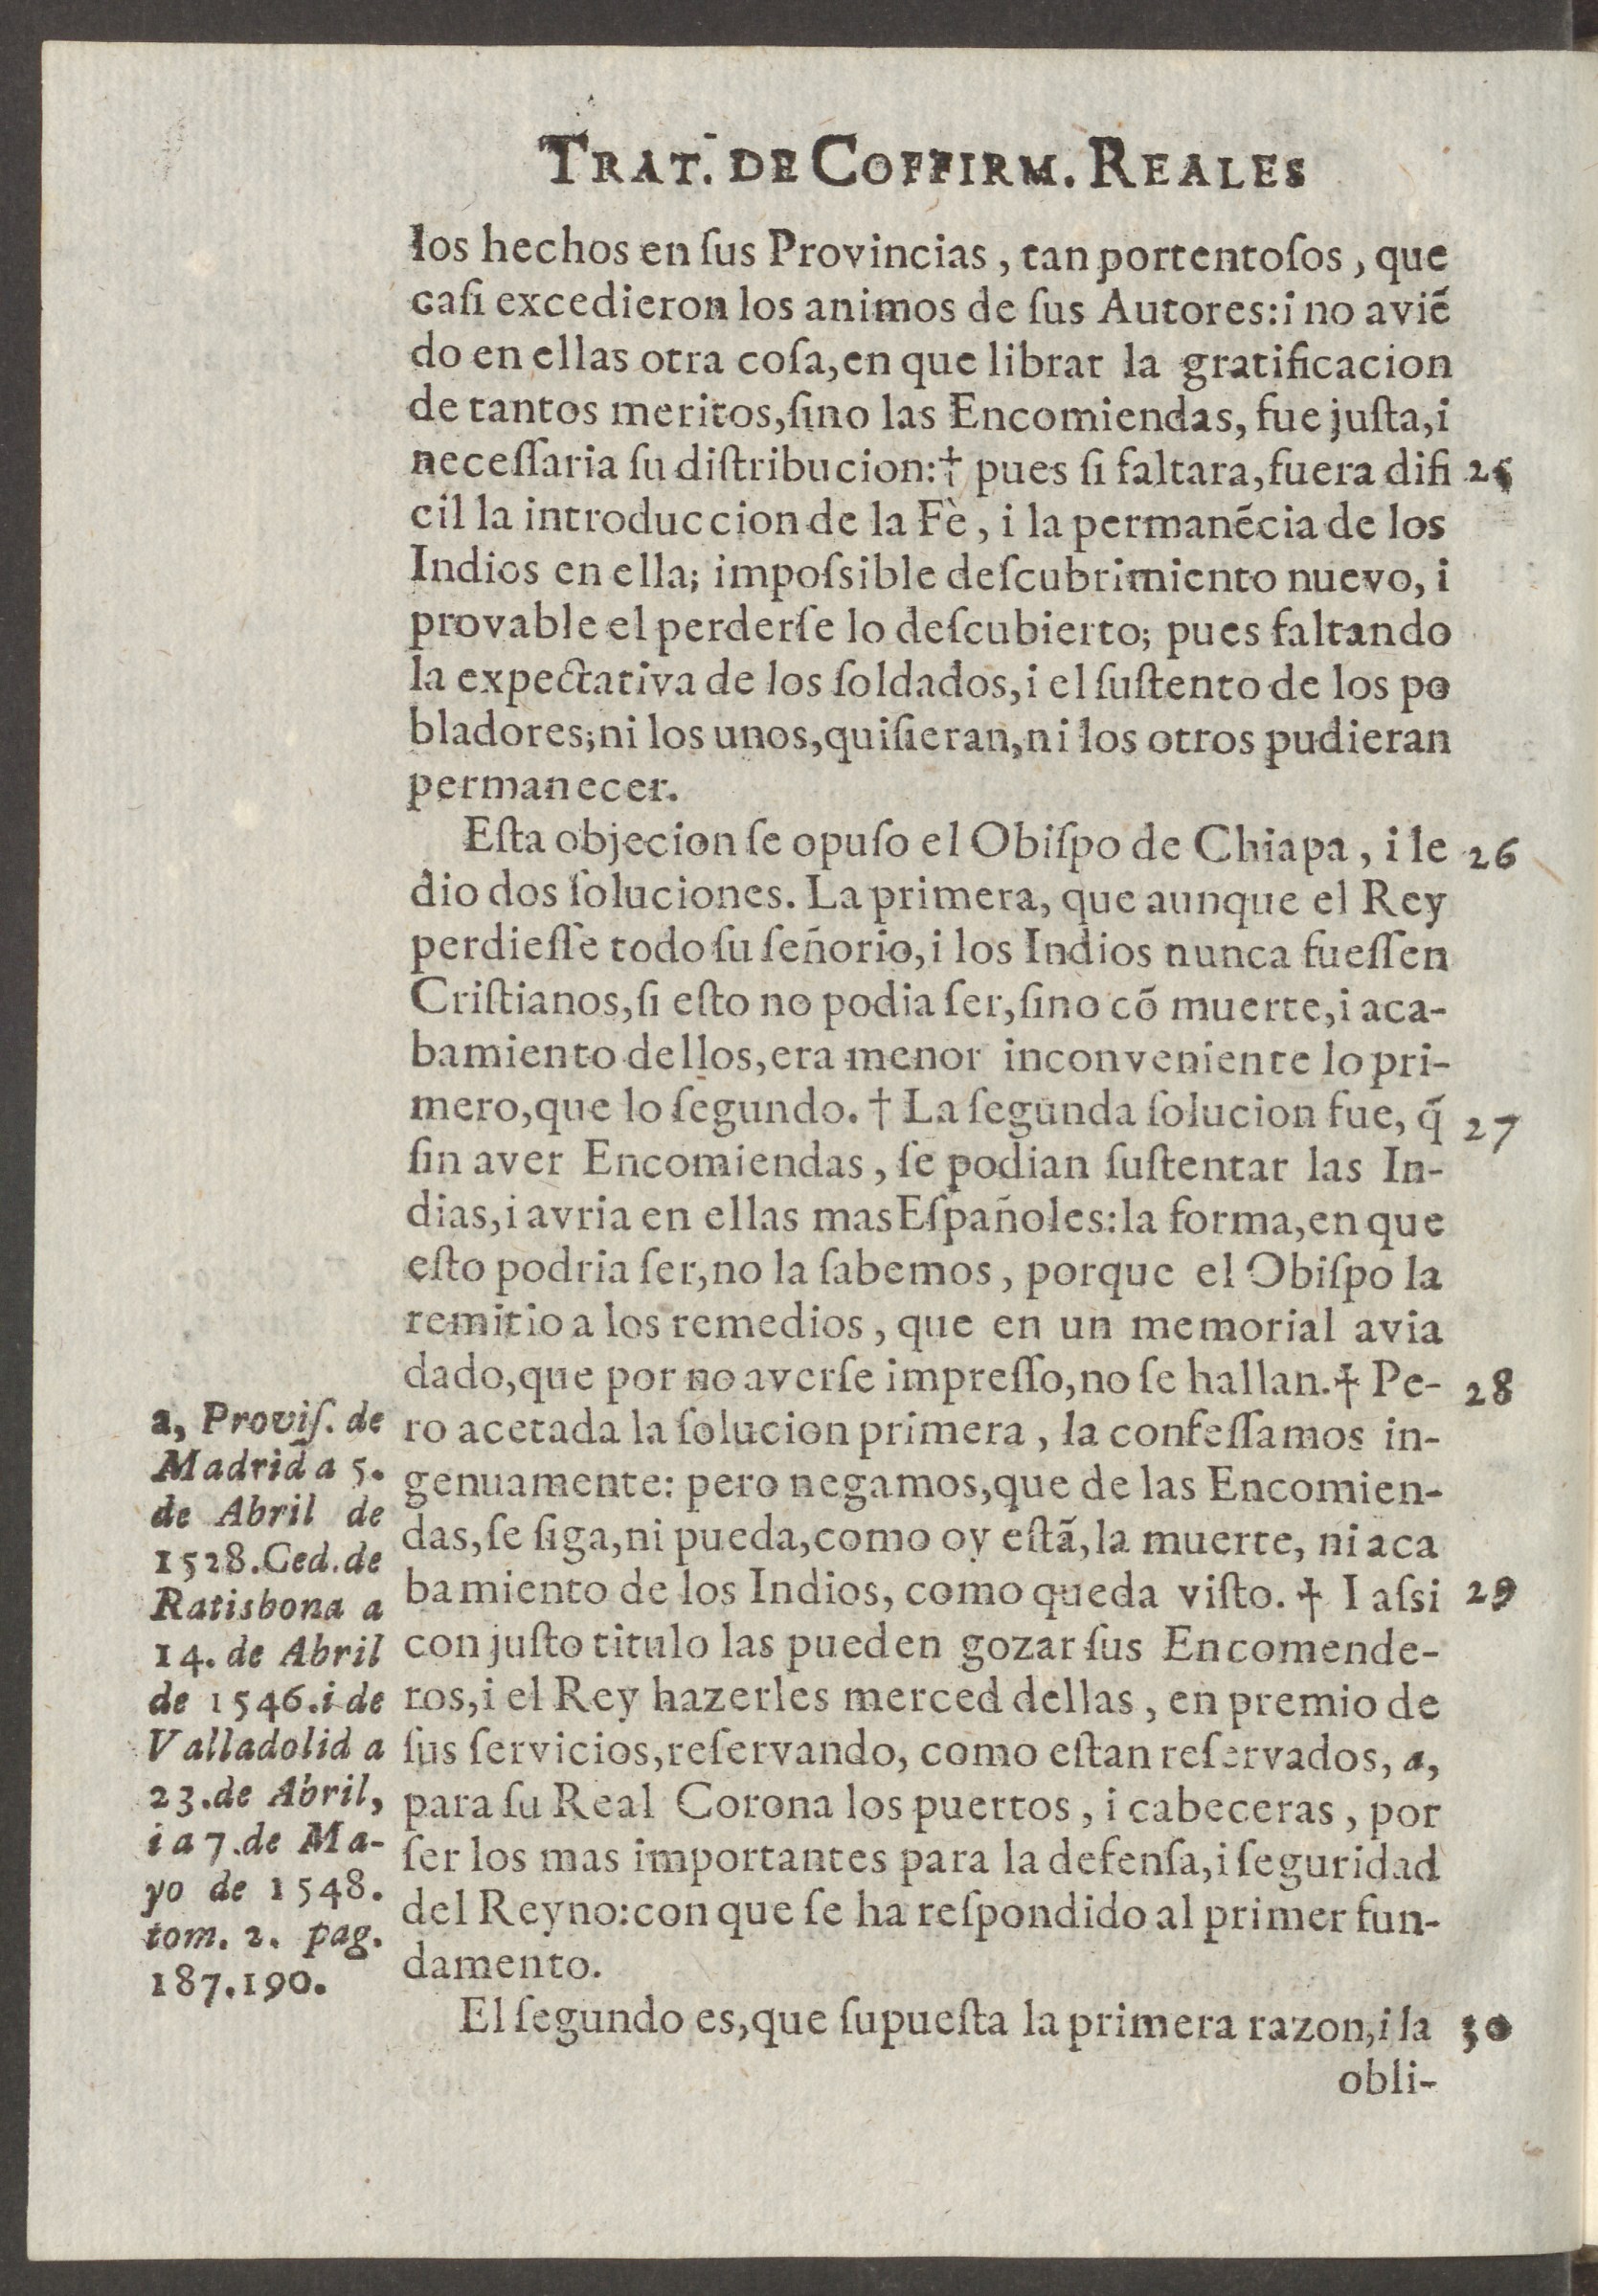 TRAT. DE COFFIRM. REALES
los hechos en ſus Provincias, tan portentoſos, que
caſi excedieron los animos de ſus Autores: i no aviẽ
do en ellas otra coſa, en que librar la gratificacion
de tantos meritos, ſino las Encomiendas, fue juſta, i
neceſſaria ſu diſtribucion: † pues ſi faltara, fuera difi 25
cil la introduccion de la Fè, i la permanẽcia de los
Indios en ella; impoſsible deſcubrimiento nuevo, i
provable el perderſe lo deſcubierto; pues faltando
la expectativa de los ſoldados, i el ſuſtento de los po
bladores; ni los unos, quiſieran, ni los otros pudieran
permanecer.
Eſta objecion ſe opuſo el Obiſpo de Chiapa, i le 26
dio dos ſoluciones. La primera, que aunque el Rey
perdieſſe todo ſu ſeñorio, i los Indios nunca fueſſen
Criſtianos, ſi eſto no podia ſer, ſino cõ muerte, i aca-
bamiento dellos, era menor inconveniente lo pri-
mero, que lo ſegundo. † La ſegunda ſolucion fue, q̃ 27
ſin aver Encomiendas, ſe podian ſuſtentar las In-
dias, i avria en ellas mas Eſpañoles: la forma, en que
eſto podria ſer, no la ſabemos, porque el Obiſpo la
remitio a los remedios, que en un memorial avia
dado, que por no averſe impreſſo, no ſe hallan. † Pe- 28
ro acetada la ſolucion primera, la confeſſamos in-
genuamente: pero negamos, que de las Encomien-
das, ſe ſiga, ni pueda, como oy eſtã, la muerte, ni aca
bamiento de los Indios, como queda viſto. † I aſsi 29
con juſto titulo las pueden gozar ſus Encomende-
ros, i el Rey hazerles merced dellas, en premio de
ſus ſervicios, reſervando, como eſtan reſervados, a,
para ſu Real Corona los puertos, i cabeceras, por
ſer los mas importantes para la defenſa, i ſeguridad
del Reyno: con que ſe ha reſpondido al primer fun-
damento.
El ſegundo es, que ſupueſta la primera razon, i la 30
obli-
a, Proviſ. de
Madrid a 5.
de Abril de
1528. Ced. de
Ratisbona a
14. de Abril
de 1546. i de
Valladolid a
23. de Abril,
i a 7. de Ma-
yo de 1548.
tom. 2. pag.
187. 190.